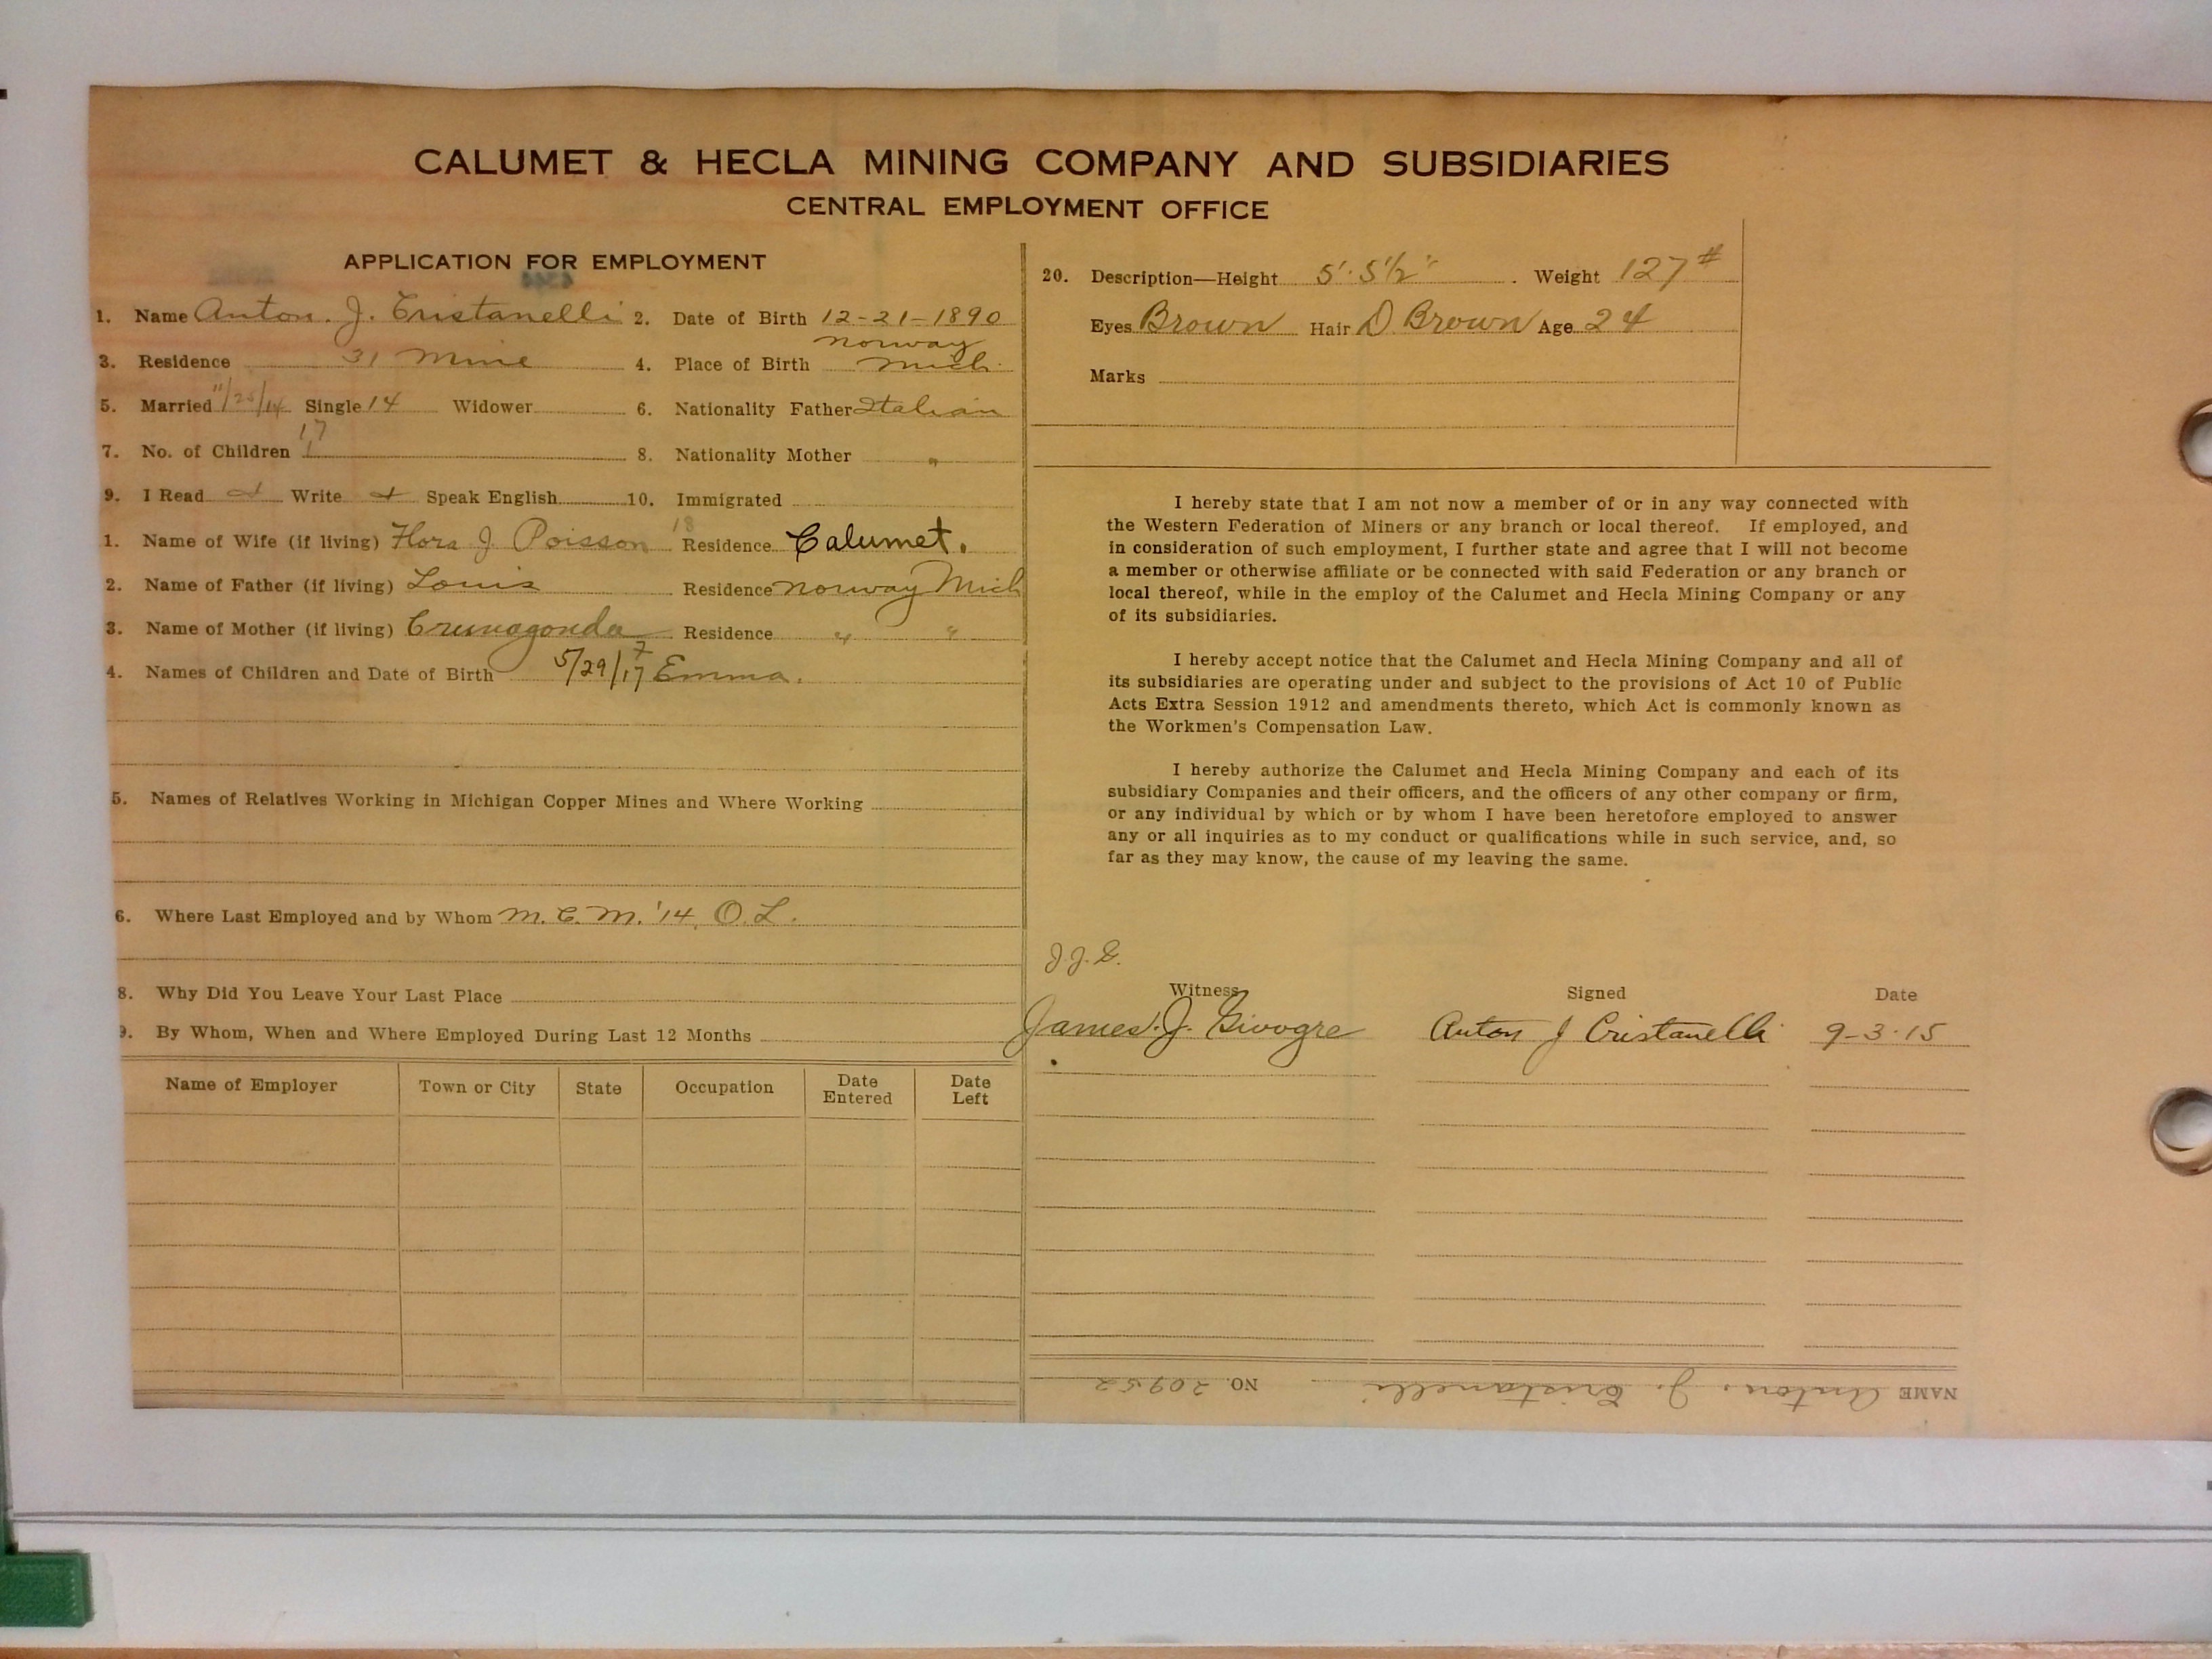 CALUMET & HECLA MINING COMPANY AND SUBSIDIARIES
CENTRAL EMPLOYMENT OFFICE
APPLICATION FOR EMPLOYMENT
1. Name Anton. J. Cristanelli 2. Date of Birth 12-21-1890
3. Residence 31 Mine 4. Place of Birth Norway Mich.
5. Married 11/25/14 Single 14 Widower 6. Nationality Father Italian
17
7. No. of Children 1 8. Nationality Mother "
9. I Read Write Speak English 10. Immigrated
18
1. Name of Wife (if living) Flora J Poisson Residence Calumet.
2. Name of Father (if living) Louis Residence Norway Mich
3. Name of Mother (if living) Residence " "
4. Names of Children and Date of Birth 5/29/17 Emma.
5. Names of Relatives Working in Michigan Copper Mines and Where Working
6. Where Last Employed and by Whom M. C. M. '14, O.L.
8. Why Did You Leave Your Last Place
9. By Whom, When and Where Employed During Last 12 Months
Name of Employer Town or City State Occupation Date Entered Date Left
20. Description—Height 5'. 5 1/2" . Weight 127#
Eyes Brown Hair D Brown Age 24
Marks
I hereby state that I am not now a member of or in any way connected with
the Western Federation of Miners or any branch or local thereof. If employed, and
in consideration of such employment, I further state and agree that I will not become
a member or otherwise affiliate or be connected with said Federation or any branch or
local thereof, while in the employ of the Calumet and Hecla Mining Company or any
of its subsidiaries.
I hereby accept notice that the Calumet and Hecla Mining Company and all of
its subsidiaries are operating under and subject to the provisions of Act 10 of Public
Acts Extra Session 1912 and amendments thereto, which Act is commonly known as
the Workmen's Compensation Law.
I hereby authorize the Calumet and Hecla Mining Company and each of its
subsidiary Companies and their officers, and the officers of any other company or firm,
or any individual by which or by whom I have been heretofore employed to answer
any or all inquiries as to my conduct or qualifications while in such service, and, so
far as they may know, the cause of my leaving the same.
J.J.G.
Witness Signed Date
James. J. Anton J Cristanelli 9-3-15
NAME Anton. J. Cristanelli NO. 20952